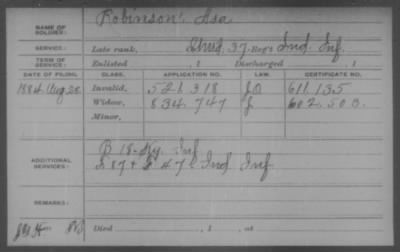 NAME OF SOLDIER: Robinson, Asa
SERVICE: Late rank, 37 Reg't Ind. Inf.
TERM OF SERVICE: Enlisted , 1 Discharged , 1
DATE OF FILING. CLASS. APPLICATION NO. LAW. CERTIFICATE NO.
1884 Aug 28 Invalid, 521 318 611.135
Widow, 834.747 602.503
Minor,
ADDITIONAL SERVICES: B 18 Ky. Inf
87 + 47 Ind Inf
REMARKS:
Died , 1 , at